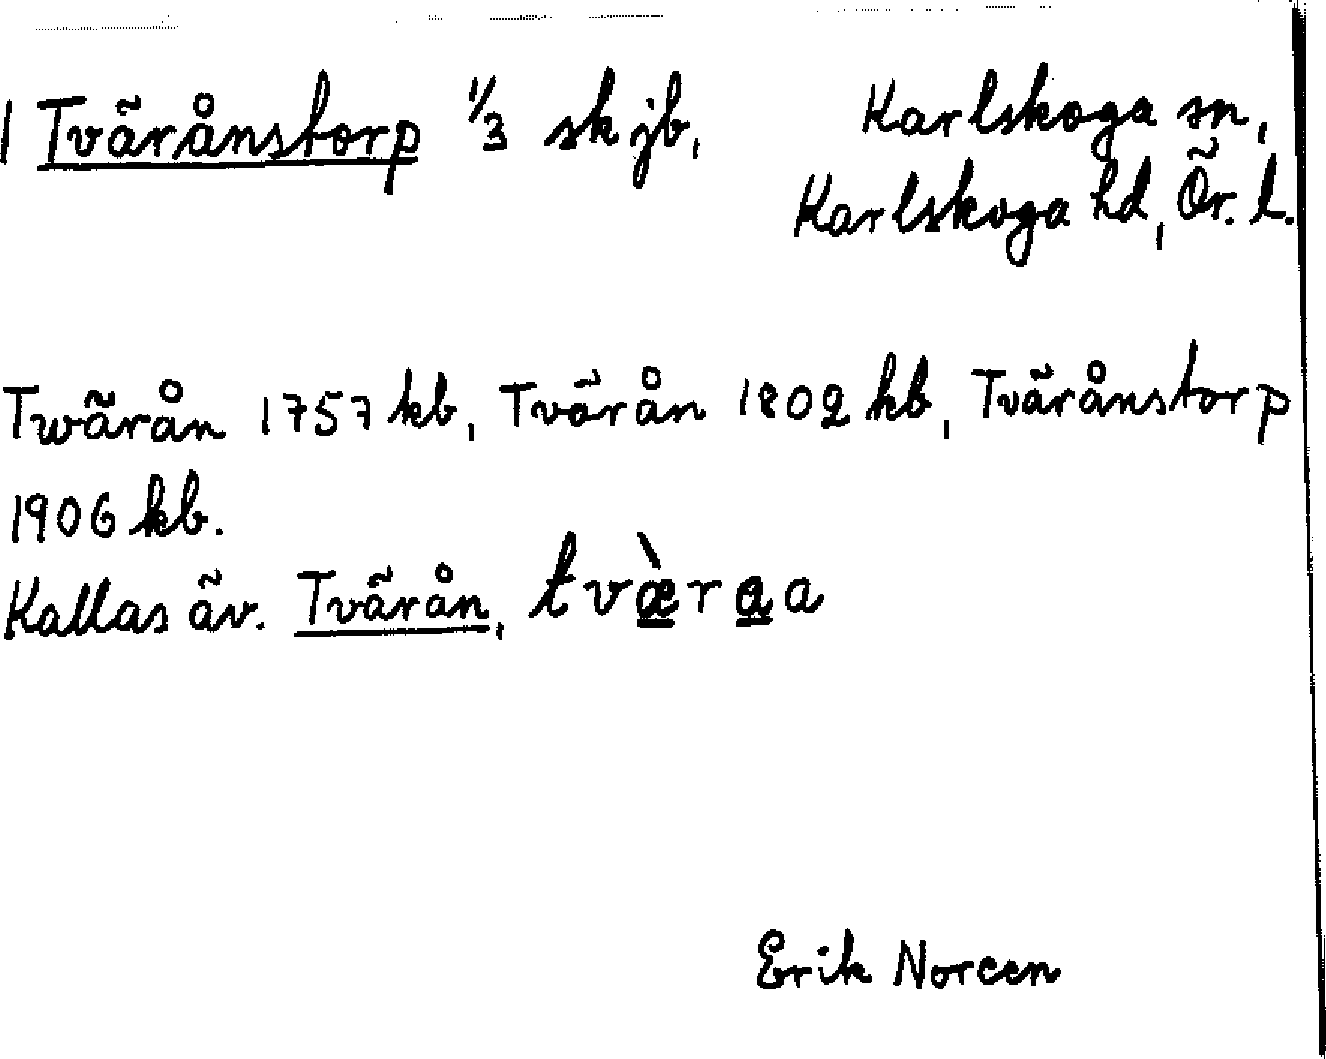 1 Tväränstorp 1/3 skjb, Karlskoga sn,
Karlskoga hd, Ör. l.
Twärån 1757 kb, Tvärån 1802 kb, Tväränstorp
1906 kb.
Kallas äv. Tvärån, tvæ̀raa
Erik Noreen